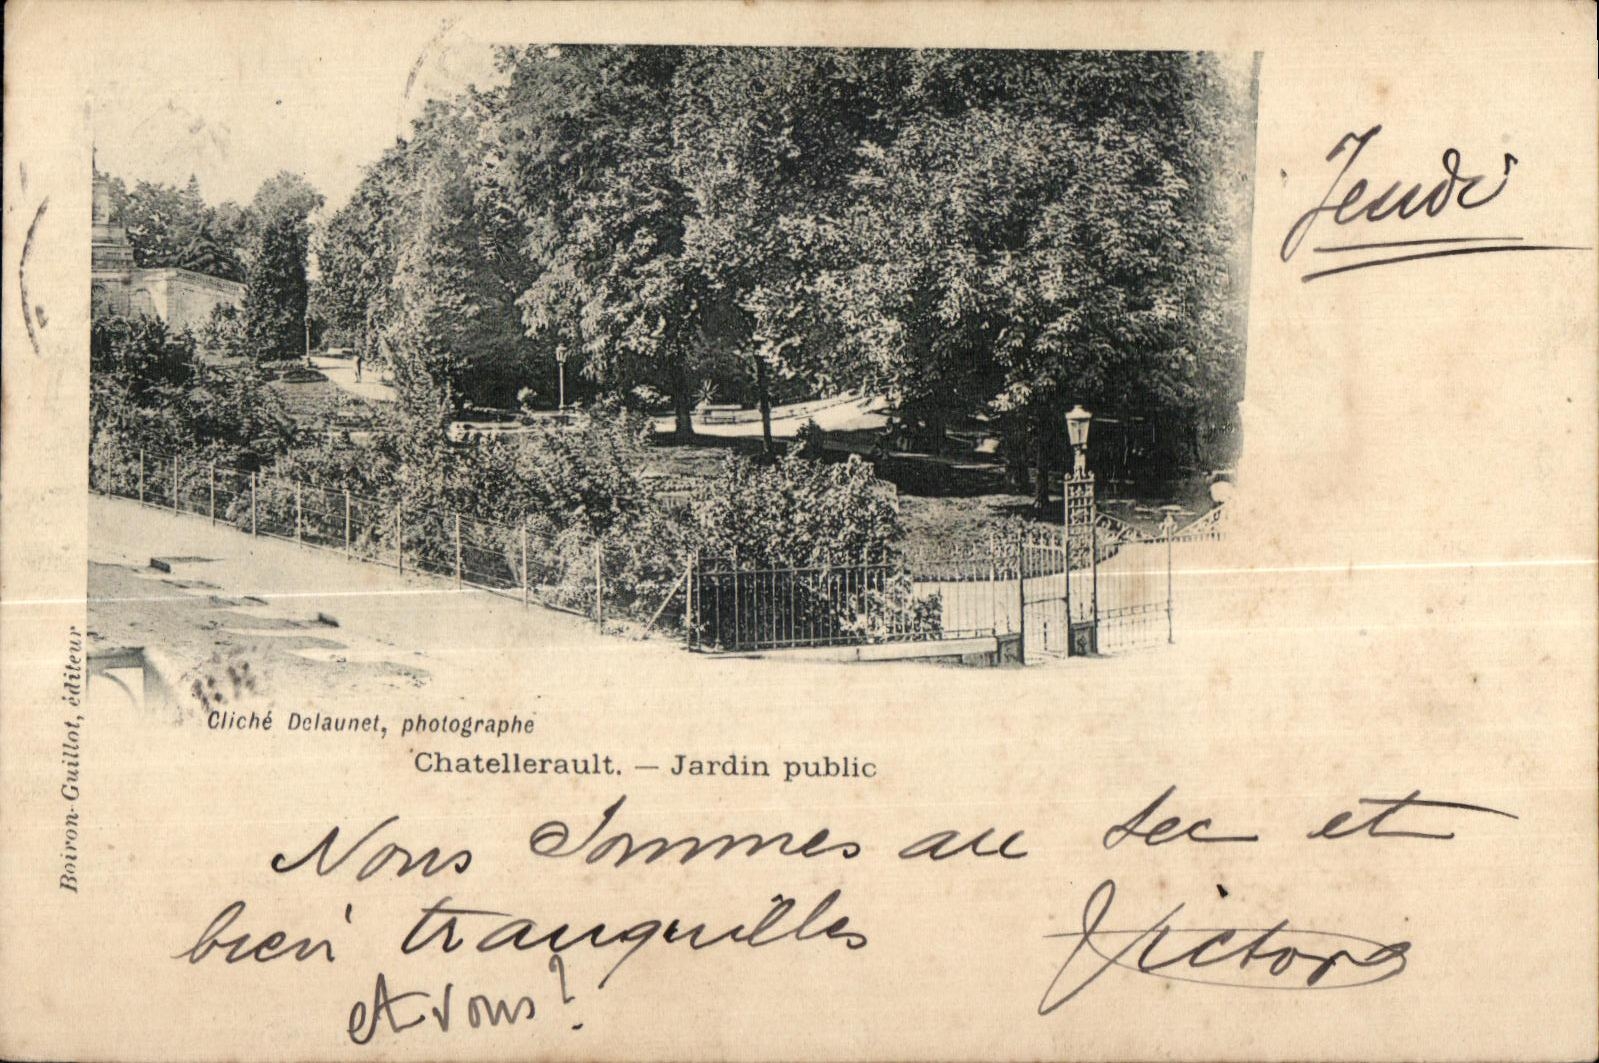 Jeudi
Boiron-Guillot, éditeur
Cliché Delaunet, photographe
Chatellerault. — Jardin public
Nous sommes au sec et
bien tranquilles
et vous ?
Victor